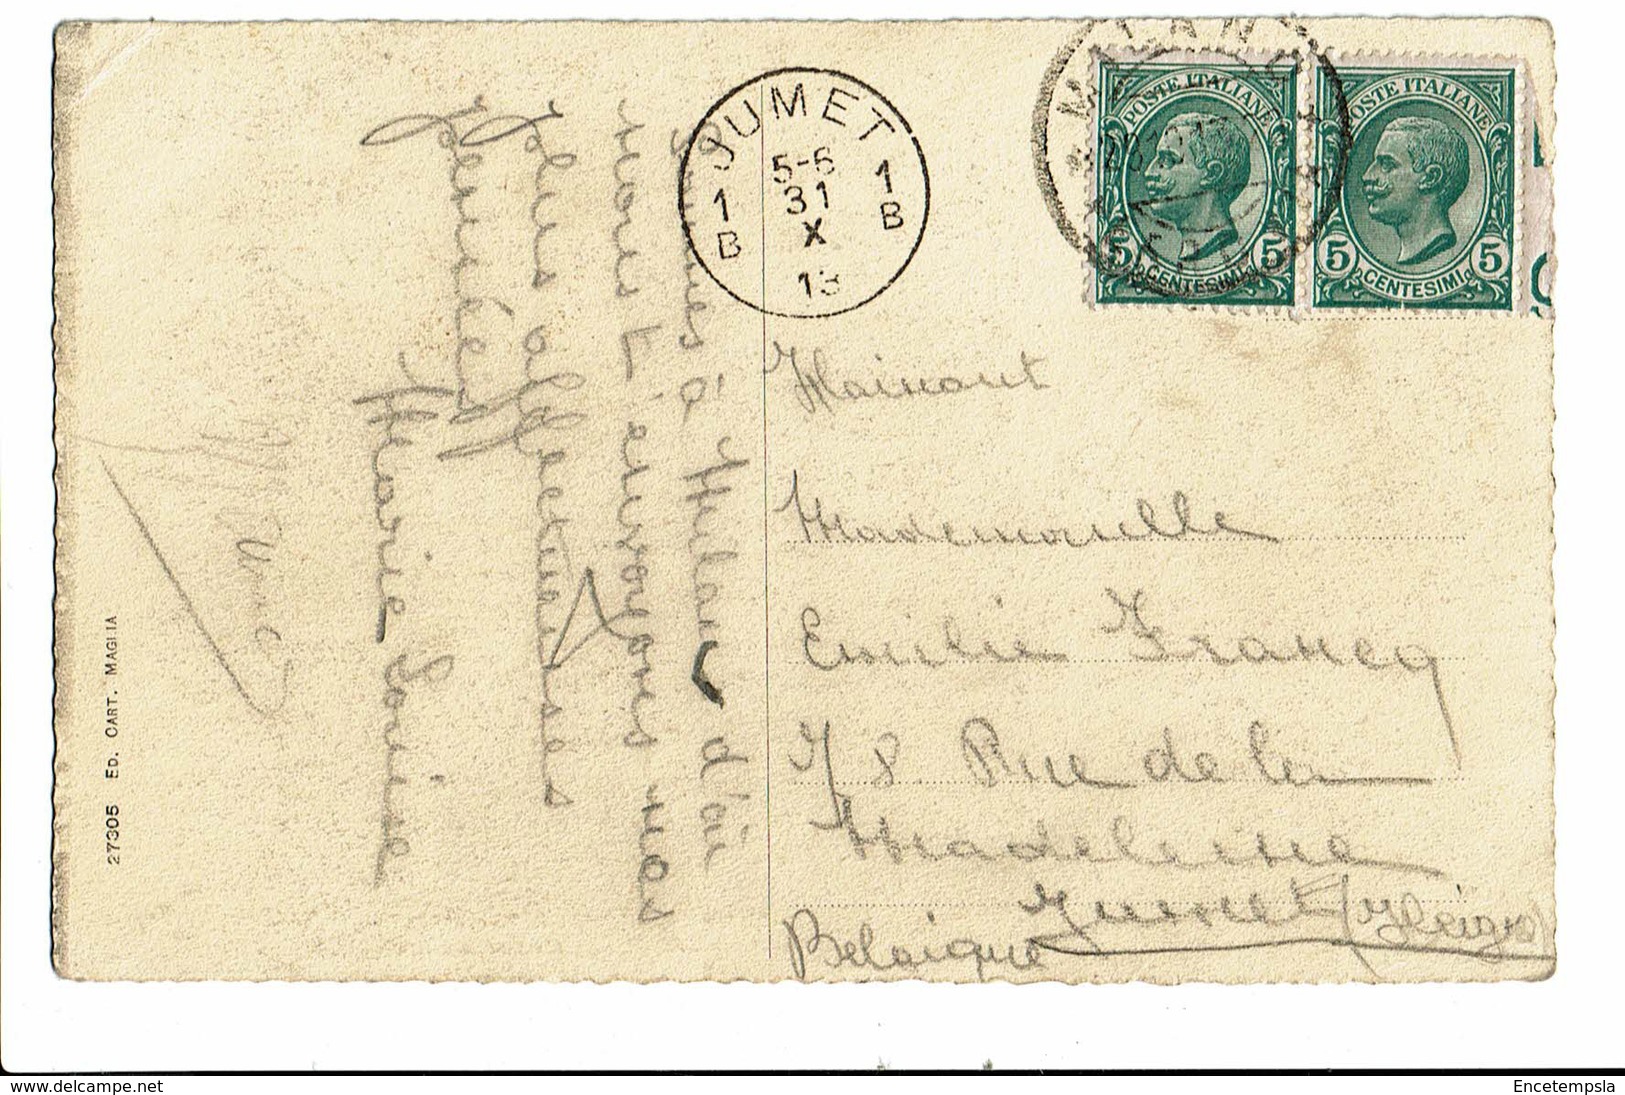 MILANO
POSTE ITALIANE
5 CENTESIMI 5
POSTE ITALIANE
5 CENTESIMI 5
JUMET
5-6
31
X
13
1 B
1 B
Sommes à Milan d'où
nous t'envoyons nos
plus affectueuses
pensées
Marie Louise
27305 ED. CART. MAGLIA
Hainaut
Mademoiselle
Emilie Francq
78 Rue de la
Madeleine
Jumet (Heigne)
Belgique
www.delcampe.net
Encetempsla